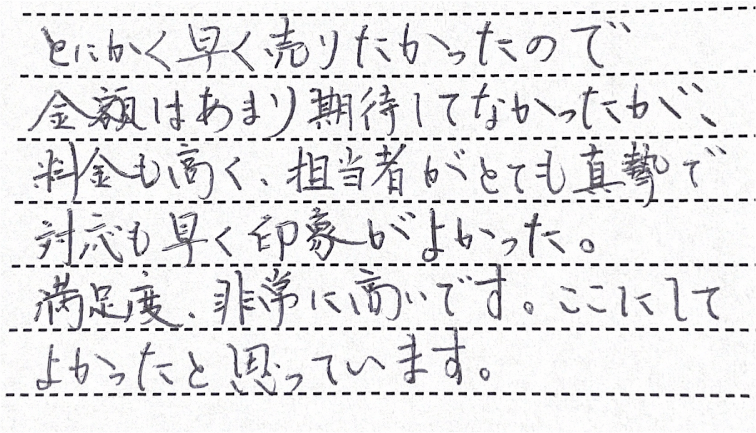 とにかく早く売りたかったので
金額はあまり期待してなかったが、
料金も高く、担当者がとても真摯で
対応も早く印象がよかった。
満足度、非常に高いです。ここにして
よかったと思っています。